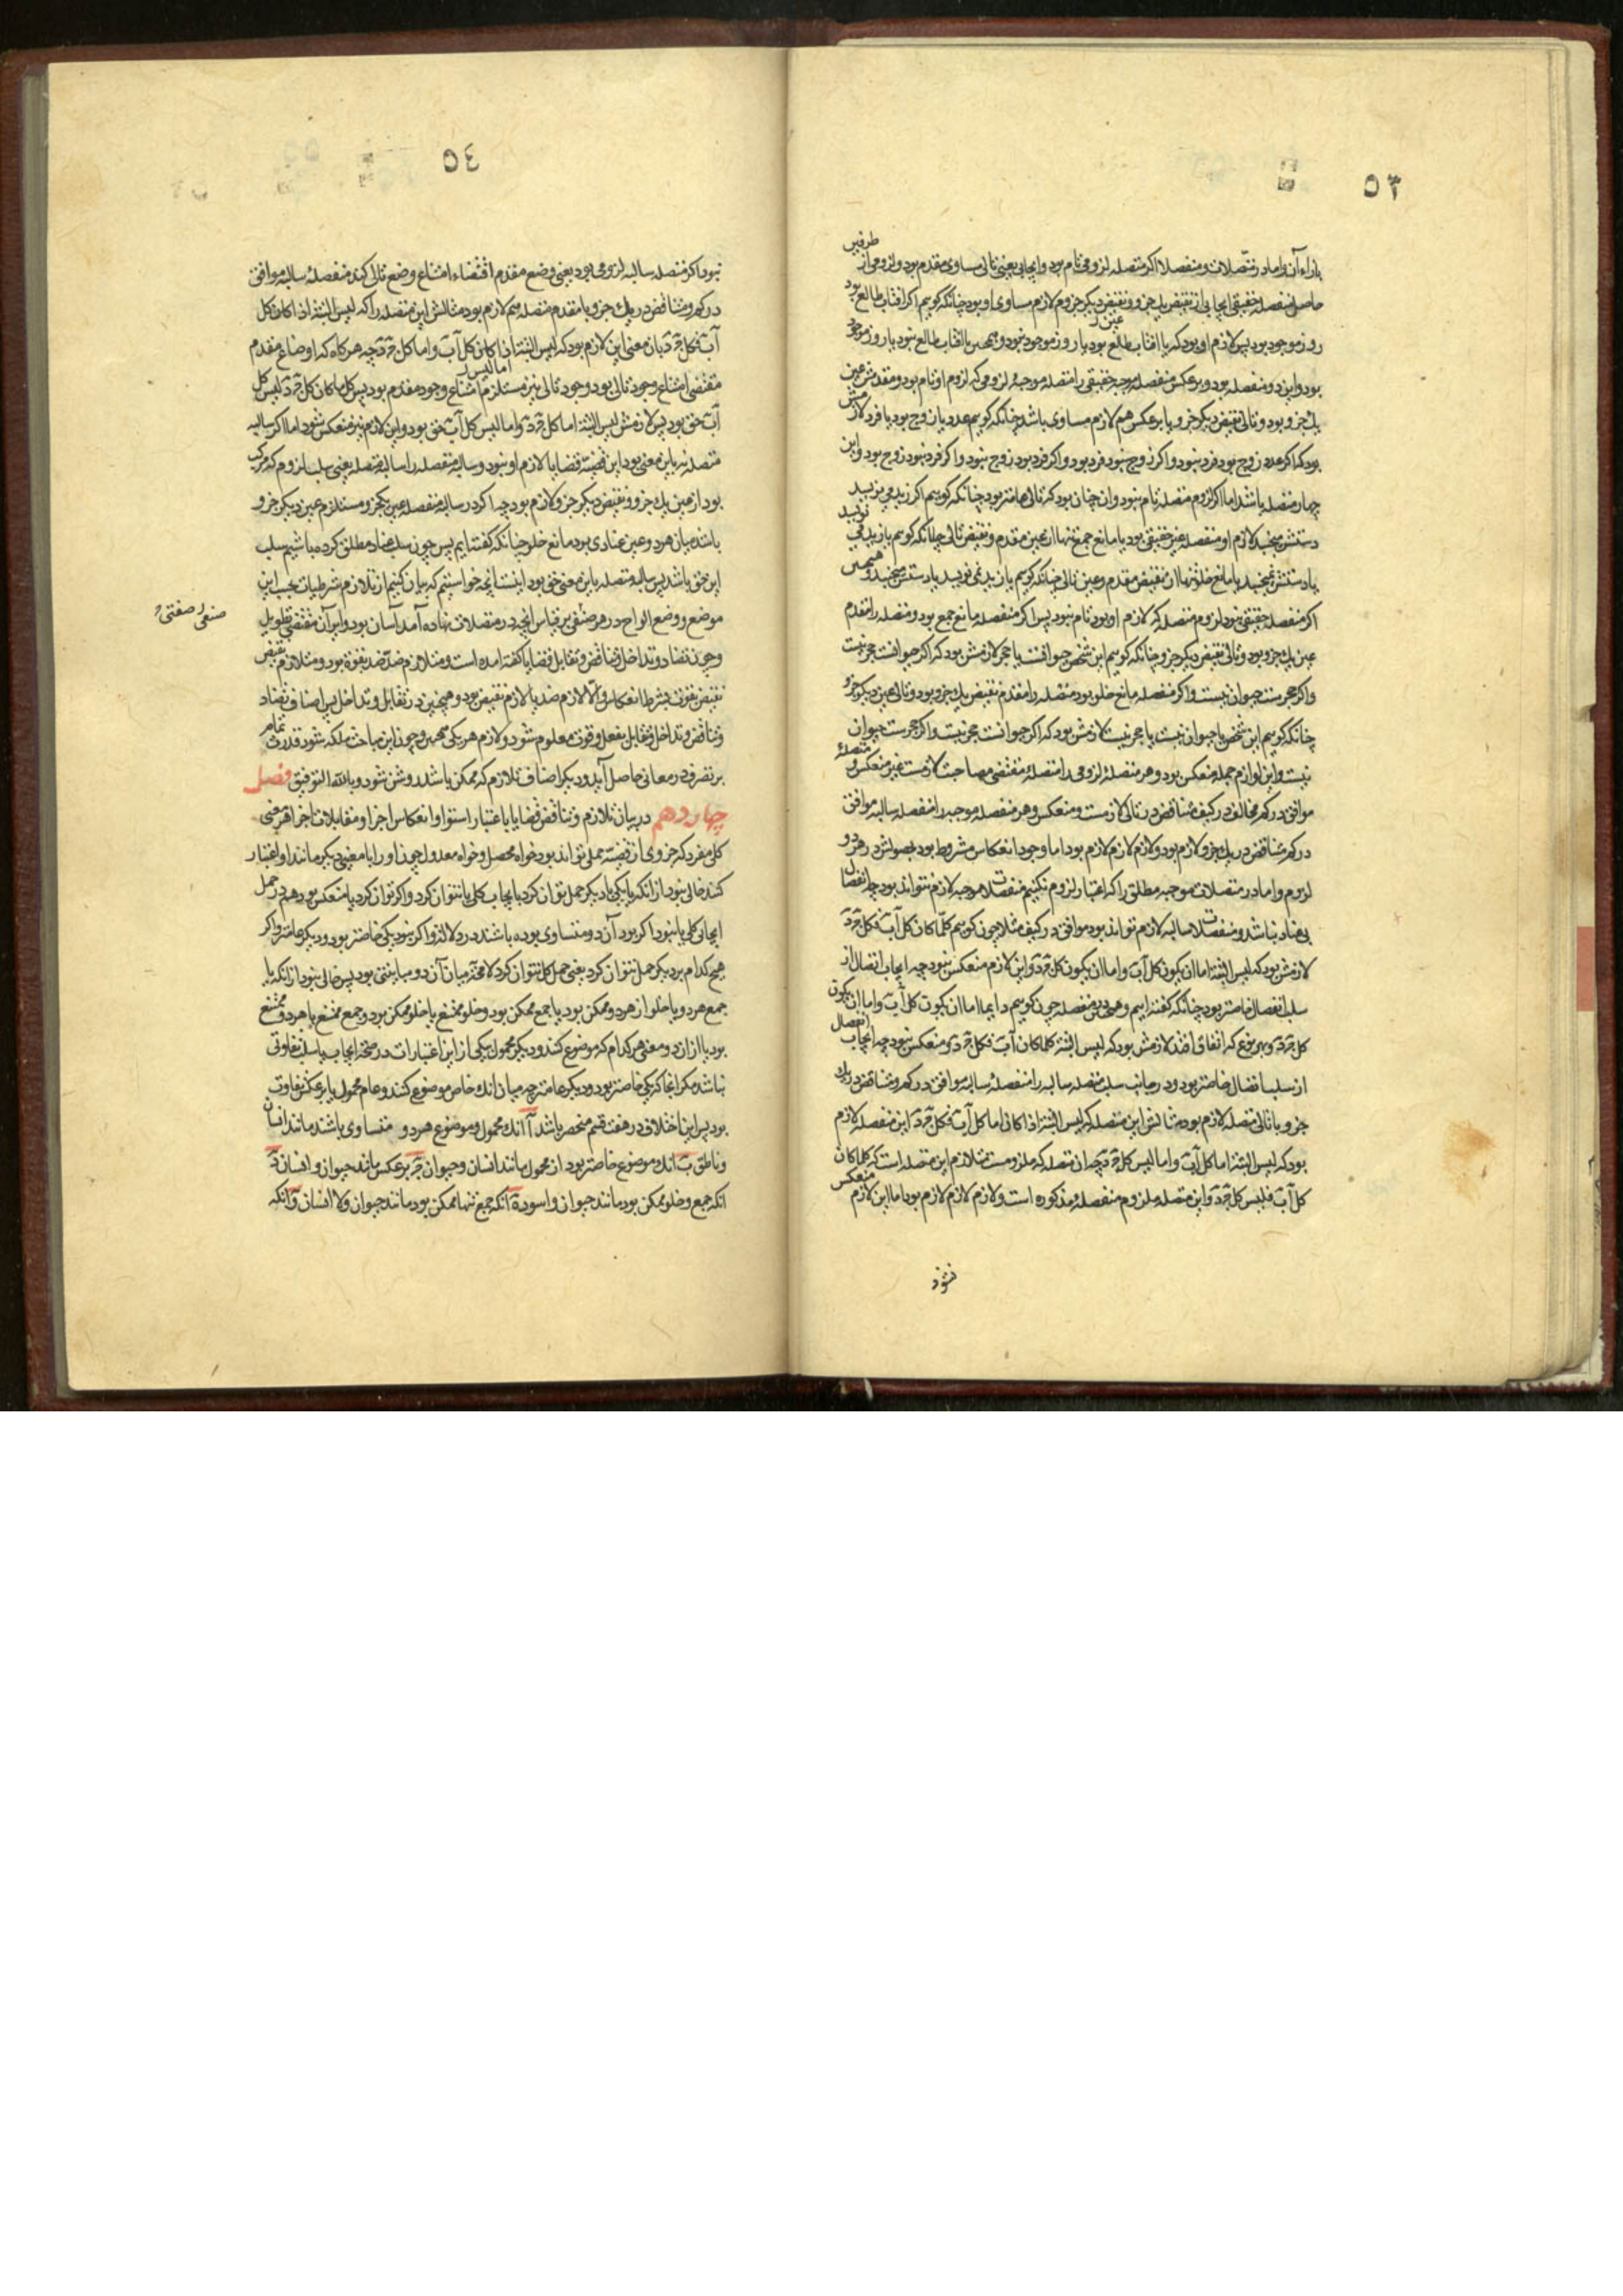 ٥٣
طرفین
بازاء آن و اما در متصلات و منفصلات اگر متصله لزومی تام بود و ایجابی یعنی تالی مساوی مقدم بود و لزومی از
حاصل منفصله حقیقی ایجابی از نقیض یک جزو و نقیض دیگر جزو هم لازم مساوی او بود چنانکه کوییم اگر افتاب طالع بود
روز موجود بود پس لازم او بود که یا افتاب طالع بود یا روز موجود نبود و همچنین یا افتاب طالع نبود یا روز موجود
بود و این دو منفصله بود و بر عکس منفصله موجبه حقیقی را متصله موجبه لزومی که لزوم او تام بود و مقدمش عین
یک جزو بود و تالی نقیض دیگر جزو یا بر عکس هم لازم مساوی باشد چنانکه کوییم عدد یا زوج بود یا فرد لازمش
بود که اگر عدد زوج بود فرد نبود و اگر زوج نبود فرد بود و اگر فرد بود زوج نبود و اگر فرد نبود زوج بود و این
چهار متصله باشد اما اگر لزوم متصله تام نبود و ان چنان بود که تالی عامتر بود چنانکه کوییم اگر زید می نویسد
دستش می جنبد لازم او منفصله غیر حقیقی بود یا مانع جمع تنها از عین مقدم و نقیض تالی چنانکه کوییم یا زید می نویسد
یا دستش نمی جنبد یا مانع خلو تنها از نقیض مقدم و عین تالی چنانکه کوییم یا زید نمی نویسد یا دستش می جنبد و همچنین
اگر منفصله حقیقی نبود لزوم متصله که لازم او بود تام نبود پس اگر منفصله مانع جمع بود و متصله را مقدم
عین یک جزو بود و تالی نقیض دیگر جزو چنانکه کوییم این شخص حیوانست یا حجر لازمش بود که اگر حیوانست حجر نیست
و اگر حجرست حیوان نیست و اگر منفصله مانع خلو بود متصله را مقدم نقیض یک جزو بود و تالی عین دیگر جزو
چنانکه کوییم این شخص یا حیوان نیست یا حجر نیست لازمش بود که اگر حیوانست حجر نیست و اگر حجرست حیوان
نیست و این لوازم جمله منعکس بود و هر متصله لزومی را متصلهٔ مقتضی مصاحبت لازمست غیر منعکس و متصلهٔ
موافق در کم مخالف در کیف متناقض در تالی لازمست و منعکس و هر منفصله موجبه را منفصله سالبه موافق
در کم متناقض در یک جزو لازم بود و لازم لازم لازم بود اما وجود انعکاس مشروط بود بحصولش در هر دو
لزوم و اما در متصلات موجبه مطلق را که اعتبار لزوم نکنیم منفصلات موجبه لازم نتواند بود چه انفصال
بی عناد نباشد و منفصلات سالبه لازم تواند بود موافق در کیف مثلا چون کوییم کلما کان کل آب فکل ج د
لازمش بود که لیس البتة اما ان یکون کل آب و اما ان یکون کل ج د و این لازم منعکس نبود چه ایجاب اتصال از
سلب انفصال خاصتر بود چنانکه گفته ایم و همچنین منفصله چون کوییم دایما اما ان یکون کل آب و اما ان یکون
کل ج د و بهر نوع که اتفاق افتد لازمش بود که لیس البتة کلما کان آب فکل ج د و منعکس نبود چه ایجاب انفصال
از سلب اتصال خاصتر بود و در جانب سلب متصله سالبه را منفصلهٔ سالبه موافق در کم و متناقض در یک
جزو با تالی متصله لازم بود مثالش این متصله که لیس البتة اذا کان اما کل آب فکل ج د این منفصله لازم
بود که لیس البتة اما کل آب و اما لیس کل ج د چه ان متصله که ملزومست متلازم این متصله است که کلما کان
کل آب فلیس کل ج د و این متصله ملزوم منفصلهٔ مذکوره است و لازم لازم لازم بود اما این لازم منعکس
نشود
٥٤
نبود اگر متصله سالبه لزومی بود یعنی وضع مقدم اقتضاء امتناع وضع تالی کند منفصلهٔ سالبه موافق
در کم و متناقض در یک جزو با مقدم متصله هم لازم بود مثالش این متصله را که لیس البتة اذا کان کل
آب فکل ج د بان معنی این لازم بود که لیس البتة اما لیس کل آب و اما کل ج د چه هرگاه که اوضاع مقدم
مقتضی امتناع وجود تالی بود وجود تالی نیز مستلزم امتناع وجود مقدم بود پس کلما کان کل ج د لیس کل
آب حق بود پس لازمش لیس البتة اما کل ج د و اما لیس کل آب حق بود و این لازم نیز منعکس نشود اما اگر سالبه
متصله نه باین معنی بود این قضیه قضایا لازم او نبود و سالبه منفصله را سالبه متصله یعنی سلب لزوم که مرکب
بود از عین یک جزو و نقیض دیگر جزو لازم بود چه اگر در سالبه منفصله عین یک جزو مستلزم عین دیگر جزو
باشد میان هر دو عین عنادی بود مانع خلو چنانکه گفته ایم پس چون سلب عناد مطلق کرده باشیم سلب
این حق باشد پس سالبه متصله باین معنی حق بود اینست انچه خواستیم که بیان کنیم از تلازم شرطیات بحسب این
موضع و وضع الواح در هر صنفی بر قیاس انچه در متصلات نهاده آمد آسان بود و ایراد آن مقتضی تطویل
صنفی صفتی
و چون تضاد و تداخل و تناقض و تقابل قضایا گفته امده است و متلازم ضد ضد بقوة بود و متلازم نقیض
نقیض بقوت بشرط انعکاس و الا لازم ضد یا لازم نقیض بود و همچنین در تقابل و تداخل پس اصناف تضاد
و تناقض و تداخل و تقابل بفعل و قوت معلوم شود و لازم هر یکی همچنین و چون این مباحث ملکه شود قدرت تمام
بر تصرف در معانی حاصل آید و دیگر اصناف تلازم که ممکن باشد روشن شود و بالله التوفیق فصل
چهاردهم در بیان تلازم و تناقض قضایا باعتبار استوا و انعکاس اجزا و مقابلات اجزا هر معنی
کلی مفرد که جزوی از قضیه حملی تواند بود خواه محصل و خواه معدول چون او را با معنی دیگر مانند او اعتبار
کنند خالی نبود از انکه یا یکی با دیگر حمل توان کرد بایجاب کلی یا نتوان کرد و اگر توان کرد یا منعکس بود هم در حمل
ایجابی کلی یا نبود اگر بود آن دو متساوی بوده باشند در دلالت و اگر نبود یکی خاصتر بود و دیگر عامتر و اگر
هیچ کدام بر دیگر حمل نتوان کرد یعنی حمل کل نتوان کرد لا محاله میان آن دو مباینتی بود پس خالی نبود از انکه یا
جمع هر دو یا خلو از هر دو ممکن بود یا جمع ممکن بود و خلو ممتنع یا خلو ممکن بود و جمع ممتنع یا هر دو ممتنع
بود یا از ان دو معنی هر کدام که موضوع کنند و دیگر محمول یکی از این اعتبارات در صحت ایجاب یا سلب تفاوتی
نباشد مگر انجا که یکی خاصتر بود و دیگر عامتر چه میان انک خاص موضوع کنند و عام محمول یا بر عکس تفاوت
بود پس این اختلاف در هفت قسم منحصر باشد آ انک محمول و موضوع هر دو متساوی باشند مانند انسان
و ناطق ب انک موضوع خاصتر بود از محمول مانند انسان و حیوان ج بر عکس مانند حیوان و انسان د
انکه جمع و خلو ممکن بود مانند حیوان و اسود ه انکه جمع تنها ممکن بود مانند حیوان و لا انسان و انکه